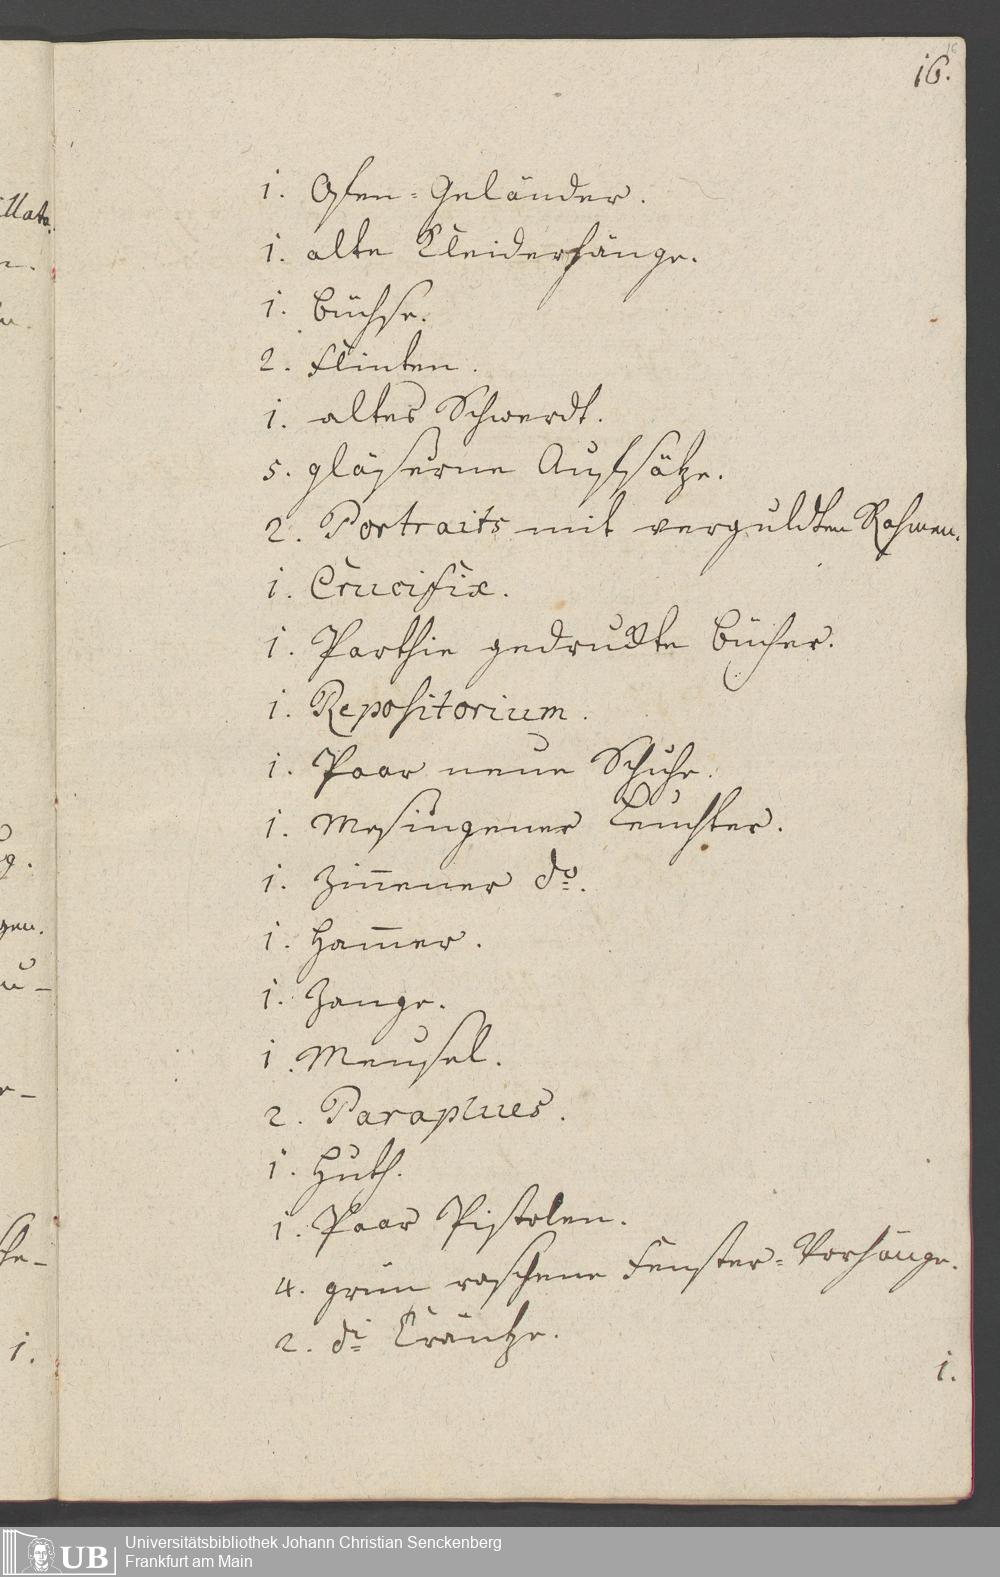 16
16.
1. Ofen-Geländer.
1. alte Kleiderhänge.
1. Büchse.
2. Flinten.
1. altes Schwerdt.
5. gläserne Aufsätze.
2. Portraits mit verguldten Rahmen.
1. Crucifix.
1. Parthie gedruckte Bücher.
1. Repositorium.
1. Paar neue Schuhe.
1. Mesingener Leuchter.
1. Zin̅ener do.
1. Ham̅er.
1. Zange.
1. Meusel.
2. Paraplues.
1. Huth.
1. Paar Pistolen.
4. grün raschene Fenster-Vorhänge.
2. di Kräntze.
1.
gen.
1.
UB
Universitätsbibliothek Johann Christian Senckenberg
Frankfurt am Main